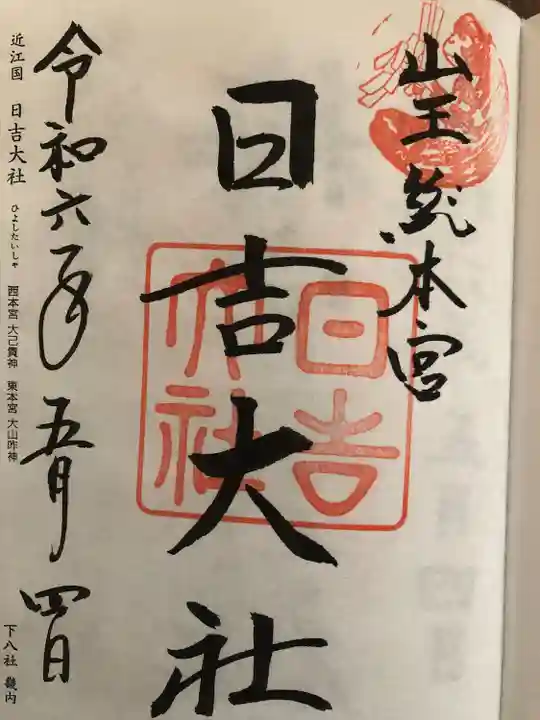 山王総本宮
日吉大社
日吉大社
令和六年五月四日
近江国 日吉大社 ひよしたいしゃ 西本宮 大己貴神 東本宮 大山咋神
下八社 畿内